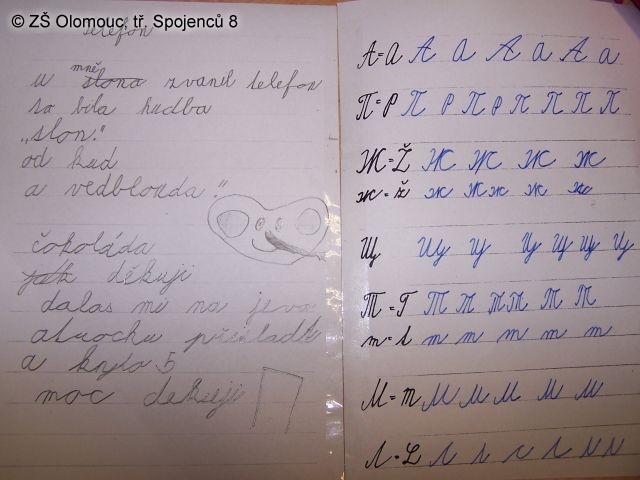 © ZŠ Olomouc, tř. Spojenců 8
telefon
mně
u slona zvanil telefon
to bila hudba
„slon."
od kud
a vedblouda."
čokoláda
jak děkuji
dalas mi na jeva
atrochu překladk
a knylo 5
moc dekuji
А=A А А А А А а
П=P П р П р П П П П
Ж=Ž Ж Ж Ж Ж
ж=ž ж ж ж ж ж
Щ Щ Щ Щ Щ Щ Щ
Т=T Т Т Т Т Т Т
т=t т т т т т
М=m М М М М М
Л=L Л Л Л Л Л Л